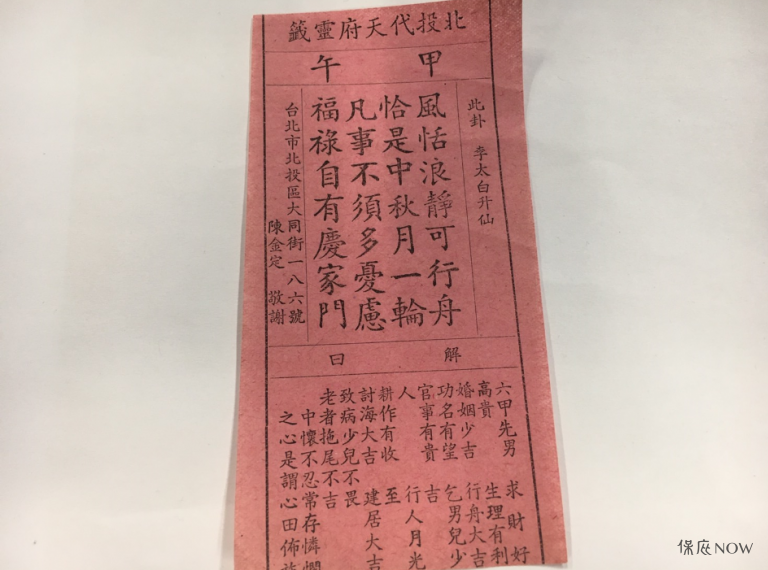 北投代天府靈籤
甲午
此卦 李太白升仙
風恬浪靜可行舟
恰是中秋月一輪
凡事不須多憂慮
福祿自有慶家門
台北市北投區大同街一八六號
陳金定 敬謝
解曰
六甲先男 求財好
高貴 生理有利
婚姻少吉 行舟大吉
功名有望 乞男兒少
官事有貴 吉
人 行人月光
耕作有收 至
討海大吉 建居大吉
致病少兒不畏
老者拖尾不吉
中懷不忍常存憐憫
之心是謂心田佈
保庇NOW